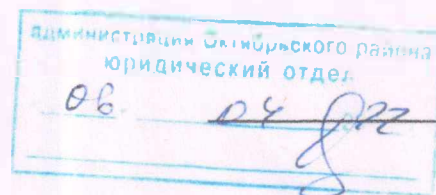 администрация Октябрьского района
юридический отдел
06 04 22